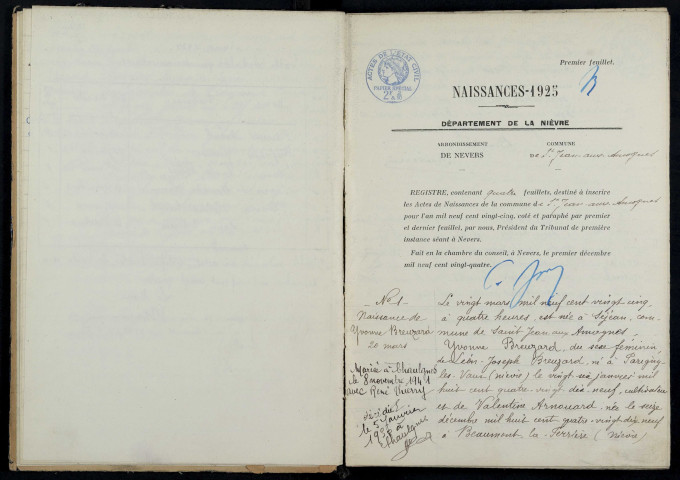 Premier feuillet.
ACTES DE L'ETAT CIVIL
PAPIER SPECIAL
NAISSANCES-1925
DÉPARTEMENT DE LA NIÈVRE
ARRONDISSEMENT
DE NEVERS
COMMUNE
DE St Jean aux Amognes
REGISTRE, contenant quatre feuillets, destiné à inscrire
les Actes de Naissances de la commune de St Jean aux Amognes
pour l'an mil neuf cent vingt-cinq, coté et paraphé par premier
et dernier feuillet, par nous, Président du Tribunal de première
instance séant à Nevers.
Fait en la chambre du conseil, à Nevers, le premier décembre
mil neuf cent vingt-quatre.
No 1
Naissance de
Yvonne Breuzard
20 mars
Marié à Chaulgnes
le 8 novembre 1941
avec René Thierry
décédée
le 5 Janvier
à Chaulgnes
Le vingt mars mil neuf cent vingt cinq
à quatre heures, est née à Séjean, com-
mune de Saint Jean aux Amognes,
Yvonne Breuzard, du sexe féminin
de Léon Joseph Breuzard, né à Parigny
les Vaux (nièvre) le vingt six janvier mil
huit cent quatre vingt dix neuf, cultivateur
et de Valentine Arnouard née le seize
décembre mil huit cent quatre-vingt dix neuf
à Beaumont la Ferrière (nièvre)